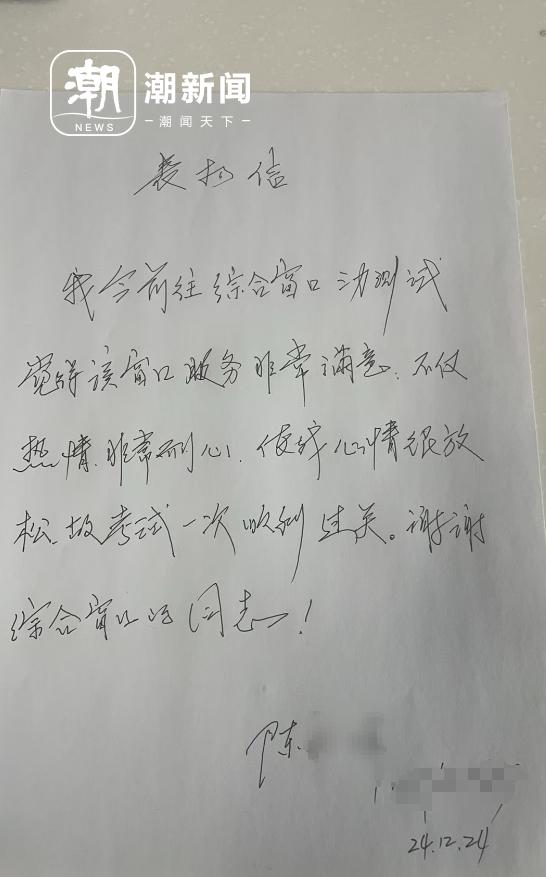 潮 潮新闻
NEWS 潮闻天下
表扬信
我今前往综合窗口 测试
觉得该窗口服务非常满意.不仅
热情.非常耐心.使我心情很放
松.故考试一次顺利过关。谢谢
综合窗口的同志!
陈
24.12.24